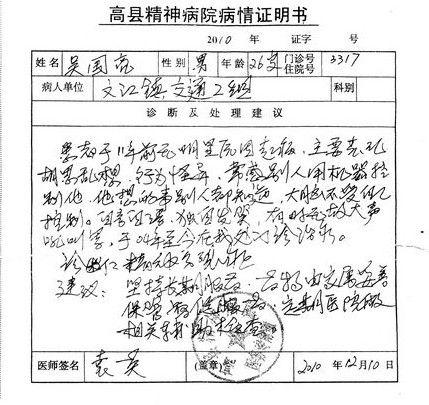 高县精神病院病情证明书
2010 年 证字 号
姓名 吴国亮 性别 男 年龄 26岁 门诊号 住院号 3317
病人单位 文江镇交通2组 科别
诊断及处理建议
患者于11年前无明显原因起病,主要表现
胡思乱想,行为怪异,常感别人用机器控
制他,他想的事别人都知道,大脑不
控制。自言自语,独自发笑,有时无故大声
吼叫等,于04年至今在我处门诊治疗。
诊断:
建议:坚持长期服药,药物由家属妥善
保管,定期医院做
相关辅助检查。
医师签名 袁 (盖章) 2010 年 12 月 10 日